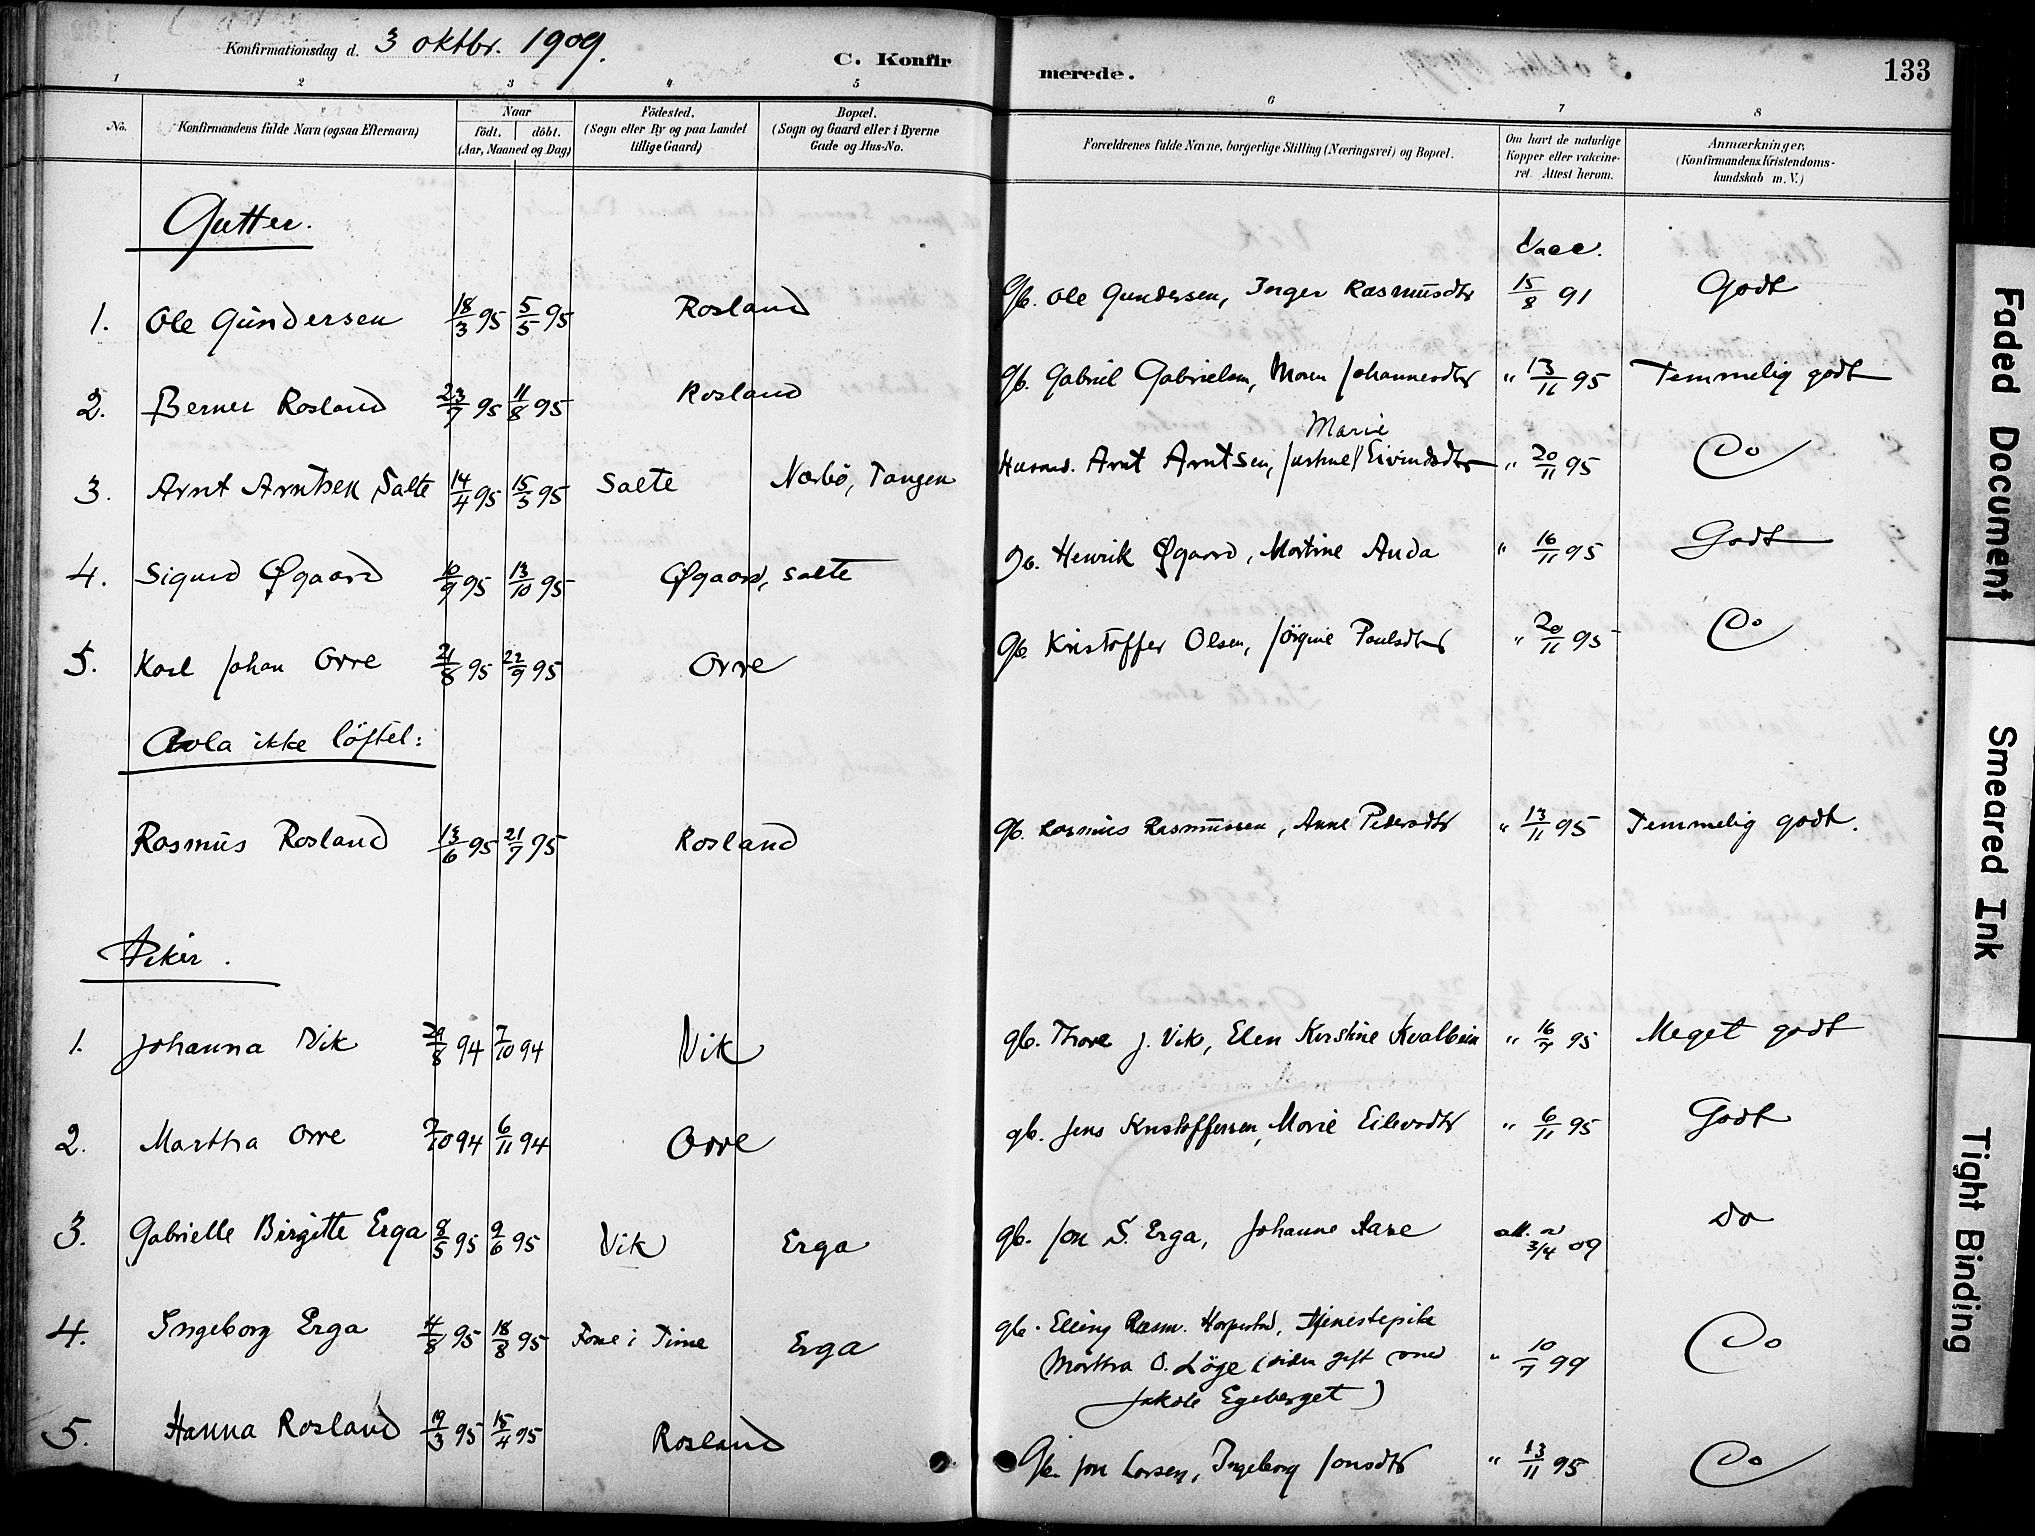 Konfirmationsdag d. 3 oktbr. 1909.
C. Konfirmerede.
133
1 2 3 4 5 6 7 8
No.
Konfirmandens fulde Navn (ogsaa Efternavn)
Naar
födt. döbt.
(Aar, Maaned og Dag)
Födested.
(Sogn eller By og paa Landet
tillige Gaard)
Bopæl.
(Sogn og Gaard eller i Byerne
Gade og Hus-No.
Forældrenes fulde Navne, borgerlige Stilling (Næringsvei) og Bopæl.
Om havt de naturlige
Kopper eller vakcine-
ret. Attest herom.
Anmærkninger.
(Konfirmandens Kristendoms-
kundskab m. V.)
Gutter.
Vacc.
1. Ole Gundersen 18/3 95 5/5 95 Rosland Gb. Ole Gundersen, Inger Rasmusdtr 15/8 91 Godt
2. Berner Rosland 23/7 95 11/8 95 Rosland Gb. Gabriel Gabrielsen, Maren Johannesdtr " 13/11 95 Temmelig godt
Marie
3. Arnt Arntsen Salte 14/4 95 15/5 95 Salte Nærbö, Tangen Husmd. Arnt Arntsen, Eivindsdtr " 20/11 95 Do
4. Sigurd Øgaard 10/9 95 13/10 95 Øgaard, Salte Gb. Henrik Øgaard, Martine Auda " 16/11 95 Godt
5. Karl Johan Orre 21/8 95 22/9 95 Orre Gb. Kristoffer Olsen, Jörgine Paulsdtr " 20/11 95 Do
Avla ikke löftet:
Rasmus Rosland 13/6 95 21/7 95 Rosland Gb. Rasmus Rasmussen, Anne Pedersdtr " 13/11 95 Temmelig godt.
Piker.
1. Johanna Vik 29/8 94 7/10 94 Vik gb. Thore J. Vik, Elen Kirstine Kvalbein " 16/7 95 Meget godt
2. Martha Orre 7/10 94 6/11 94 Orre gb. Jens Kristoffersen, Marie Eilevsdtr " 6/11 95 Godt
3. Gabrielle Birgitte Erga 8/5 95 9/6 95 Vik Erga gb. Jon S. Erga, Johanne Aase att. 3/4 09 Do
4. Ingeborg Erga 4/8 95 18/8 95 i Time Erga gb. Elling Rasm. Harpestad, Tjenestepike
Martha O. Löge (siden gift med " 10/7 99 Do
Jakob Egeberget)
5. Hanna Rosland 19/3 95 15/4 95 Rosland Gb. Jon Larsen, Ingeborg Jonsdtr " 13/11 95 Do
Faded Document
Smeared Ink
Tight Binding